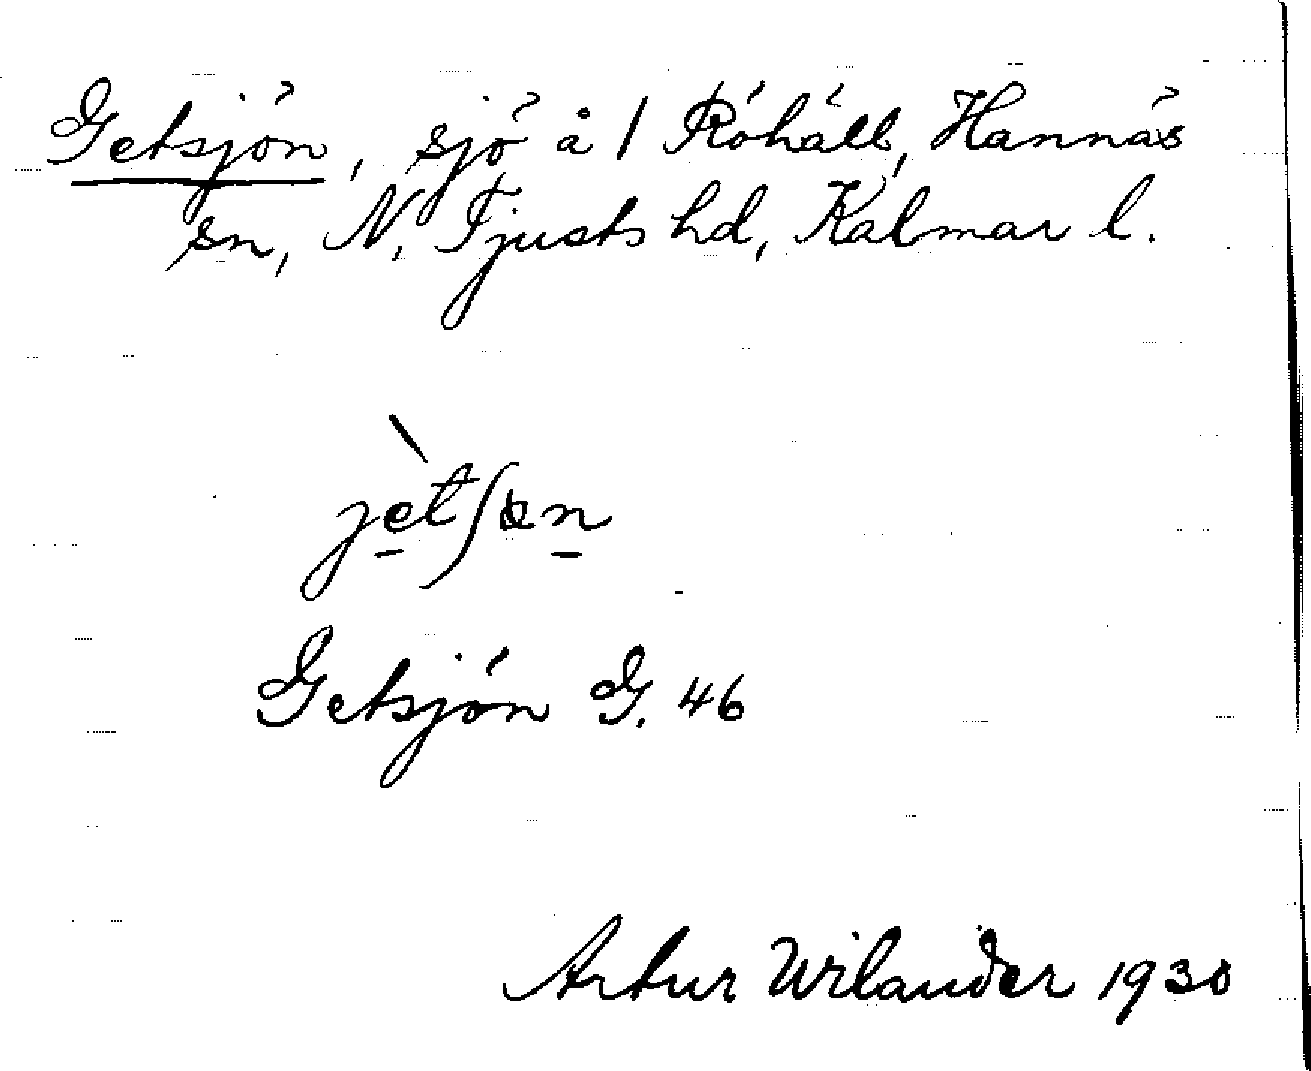 Getsjön, sjö å 1 Röhäll, Hannäs
sn, N. Tjusts hd, Kalmar l.
jètʃɵn
Getsjön G. 46
Artur Wilander 1930